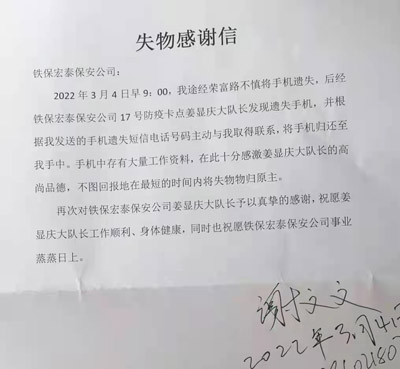 失物感谢信
铁保宏泰保安公司：
2022年3月4日早9：00，我途经荣富路不慎将手机遗失，后经
铁保宏泰保安公司17号防疫卡点姜显庆大队长发现遗失手机，并根
据我发送的手机遗失短信电话号码主动与我取得联系，将手机归还至
我手中。手机中存有大量工作资料，在此十分感激姜显庆大队长的高
尚品德，不图回报地在最短的时间内将失物物归原主。
再次对铁保宏泰保安公司姜显庆大队长予以真挚的感谢，祝愿姜
显庆大队长工作顺利、身体健康，同时也祝愿铁保宏泰保安公司事业
蒸蒸日上。
谢文文
2022年3月4日